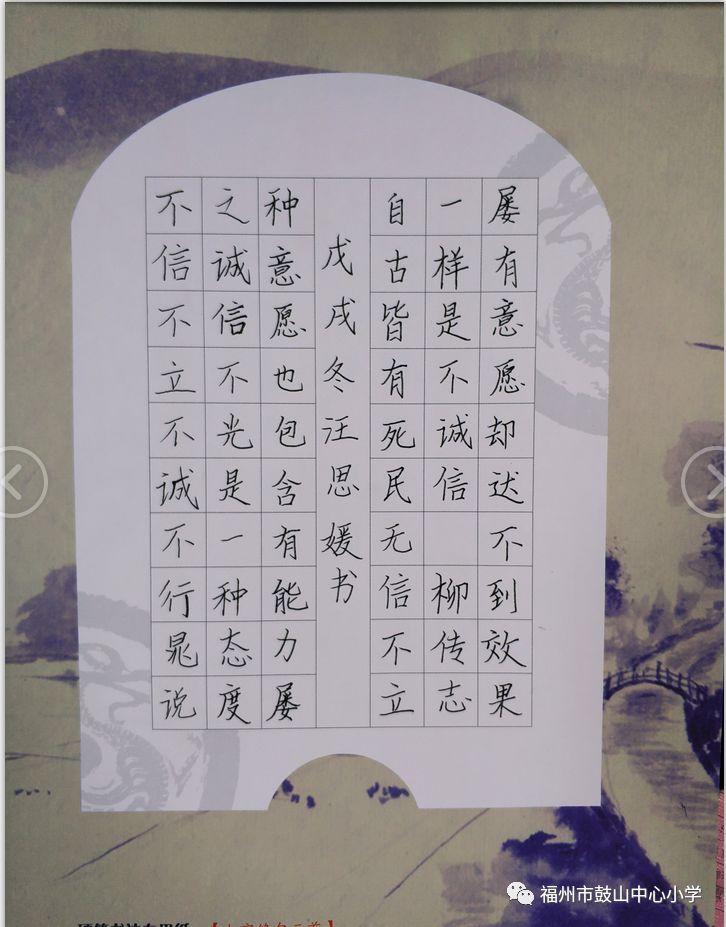 不信不立不诚不行晁说
之诚信不光是一种态度
种意愿也包含有能力屡
屡有意愿却达不到效果
一样是不诚信 柳传志
自古皆有死民无信不立
戊戌冬汪思媛书
福州市鼓山中心小学